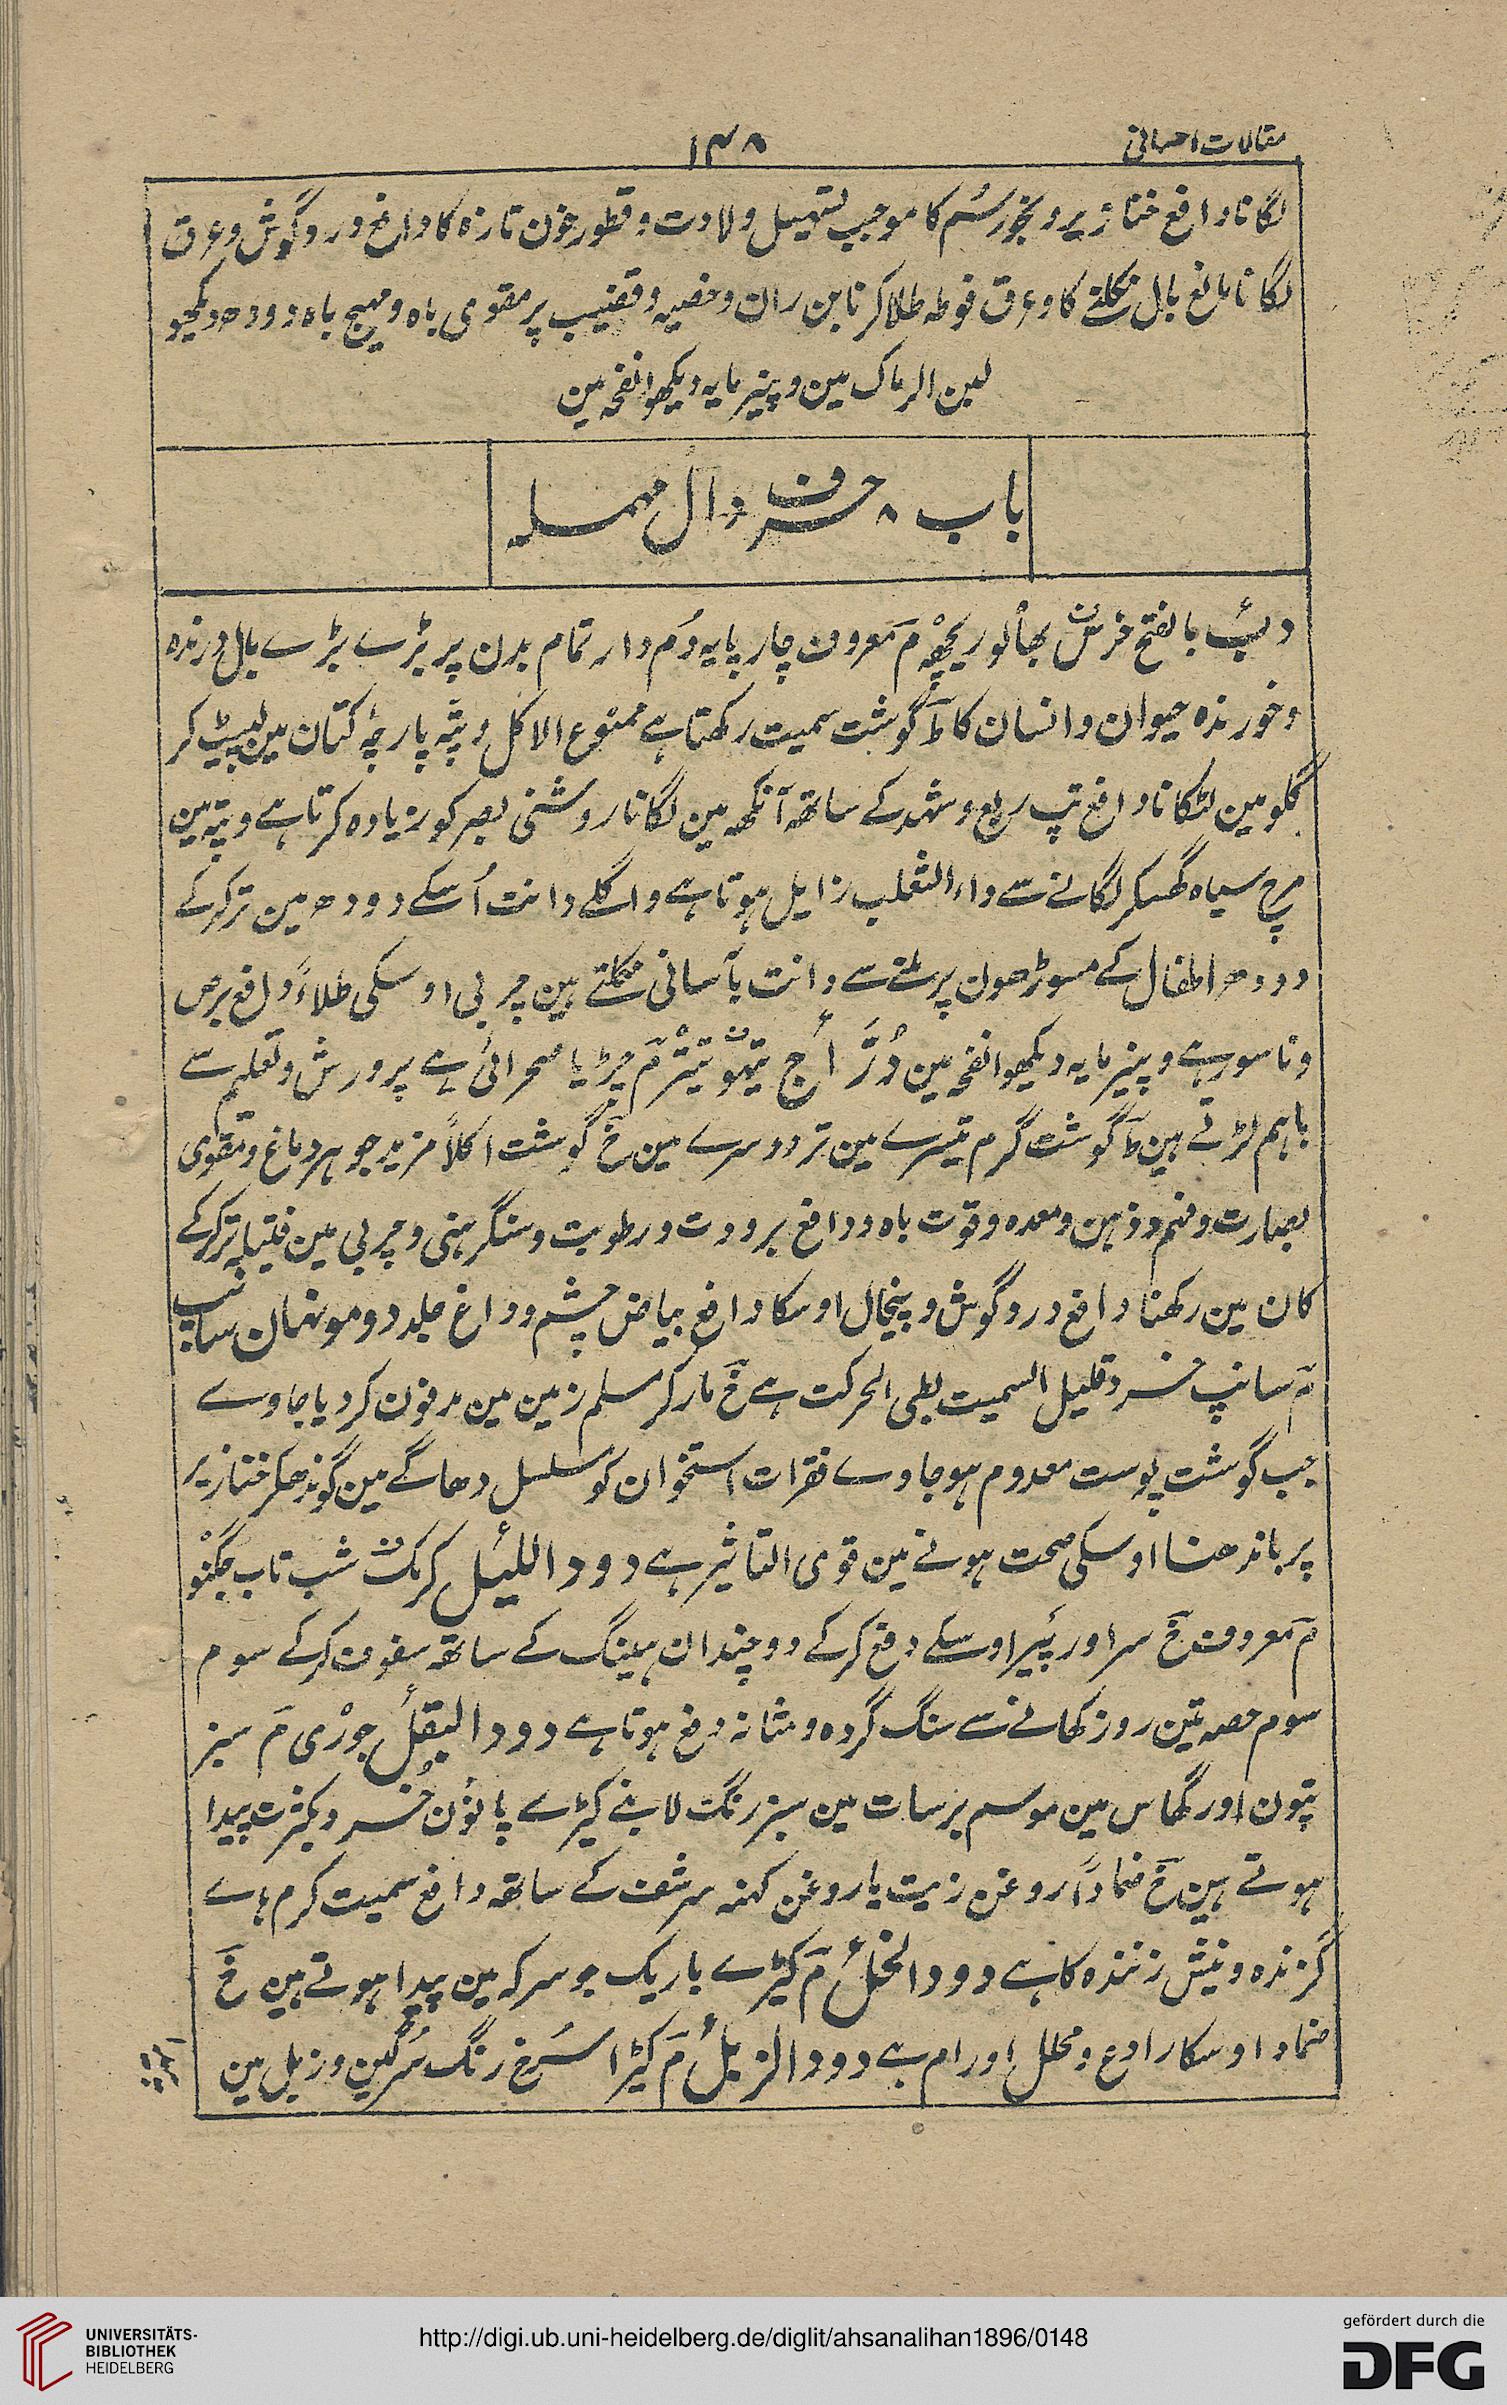 مقالات احسانی
۱۴۸
لگانا دافع خنازیر و بخور سُم کا موجب تسہیل ولادت و قطور خون تازہ کا دافع درد گوش و عرق
لگانا مانع بال نکلنے کا و عرق فوطہ طلا کرنا بن ران و خصیہ و قضیب پر مقوی باہ و مہیج باہ و دودھ دیکھو
لبن الرماک مین و پنیر مایہ دیکھو انفحہ مین
باب ۸ حرف دال مہملہ
دبّ بالفتح خرس بھالو ریچھ م معروف چارپایہ دُم دار تمام بدن پر بڑے بڑے بال درندہ
و خورندہ حیوان و انسان کا ط گوشت سمیت رکھتا ہے ممنوع الاکل و پتّہ پارچۂ کتان مین لپیٹ کر
گلو مین لٹکانا دافع تپ ربع و شہد کے ساتھ آنکھ مین لگانا روشنی بصر کو زیادہ کرتا ہے و پتہ مین
مرچ سیاہ گھسکر لگانے سے داء الثعلب زایل ہوتا ہے و اگلے دانت اُسکے دودھ مین تر کرکے
دودھ اطفال کے مسوڑھون پر ملنے سے دانت بآسانی نکلتے ہین چربی اوسکی طلاءً دافع برص
و ناسور ہے و پنیر مایہ دیکھو انفحہ مین دُرَّاج تیہو تیتر م چڑیا صحرائی ہے پرورش و تعلیم سے
باہم لڑتے ہین ط گوشت گرم تیسرے مین تر دوسرے مین خ گوشت اکلاً مزید جوہر دماغ و مقوی
بصارت و فہم و ذہن و معدہ و قوت باہ و دافع برودت و رطوبت و سنگرہنی و چربی مین فتیلہ تر کرکے
کان مین رکھنا دافع درد گوش و پیخال اوسکا دافع بیاض چشم و داغ جلد دومونہان سانپ
م سانپ خسرد قلیل السمیت بطی الحرکت ہے خ مار کر مسلم زمین مین مدفون کر دیا جاوے
جب گوشت پوست معدوم ہو جاوے فقرات استخوان کو مسلسل دھاگے مین گوندھکر خنازیر
پر باندھنا اوسکی صحت ہونے مین قوی التاثیر ہے دود اللیل کرمک شب تاب جگنو
م معروف خ سر اور پَیر اوسکے دفع کرکے دوچندان ہینگ کے ساتھ سفوف کرکے سوم
سوم حصہ تین روز کھانے سے سنگ گردہ و مثانہ دفع ہوتا ہے دود البقل جوزی م سبز
پتون اور گھاس مین موسم برسات مین سبز رنگ لانبے کیڑے پانوُن خُسرد بکثرت پیدا
ہوتے ہین خ ضماداً روغن زیت یا روغن کہنہ سرشف کے ساتھ دافع سمیت کرم ہاے
گزندہ و نیش زنندہ کا ہے دود الخل م کیڑے باریک جو سرکہ مین پیدا ہوتے ہین خ
ضماد اوسکا رادع و محلل اورام ہے دود الزبل م کیڑا سُرخ رنگ سرگین و زبل مین
UNIVERSITÄTS-
BIBLIOTHEK
HEIDELBERG
http://digi.ub.uni-heidelberg.de/diglit/ahsanalihan1896/0148
gefördert durch die
DFG